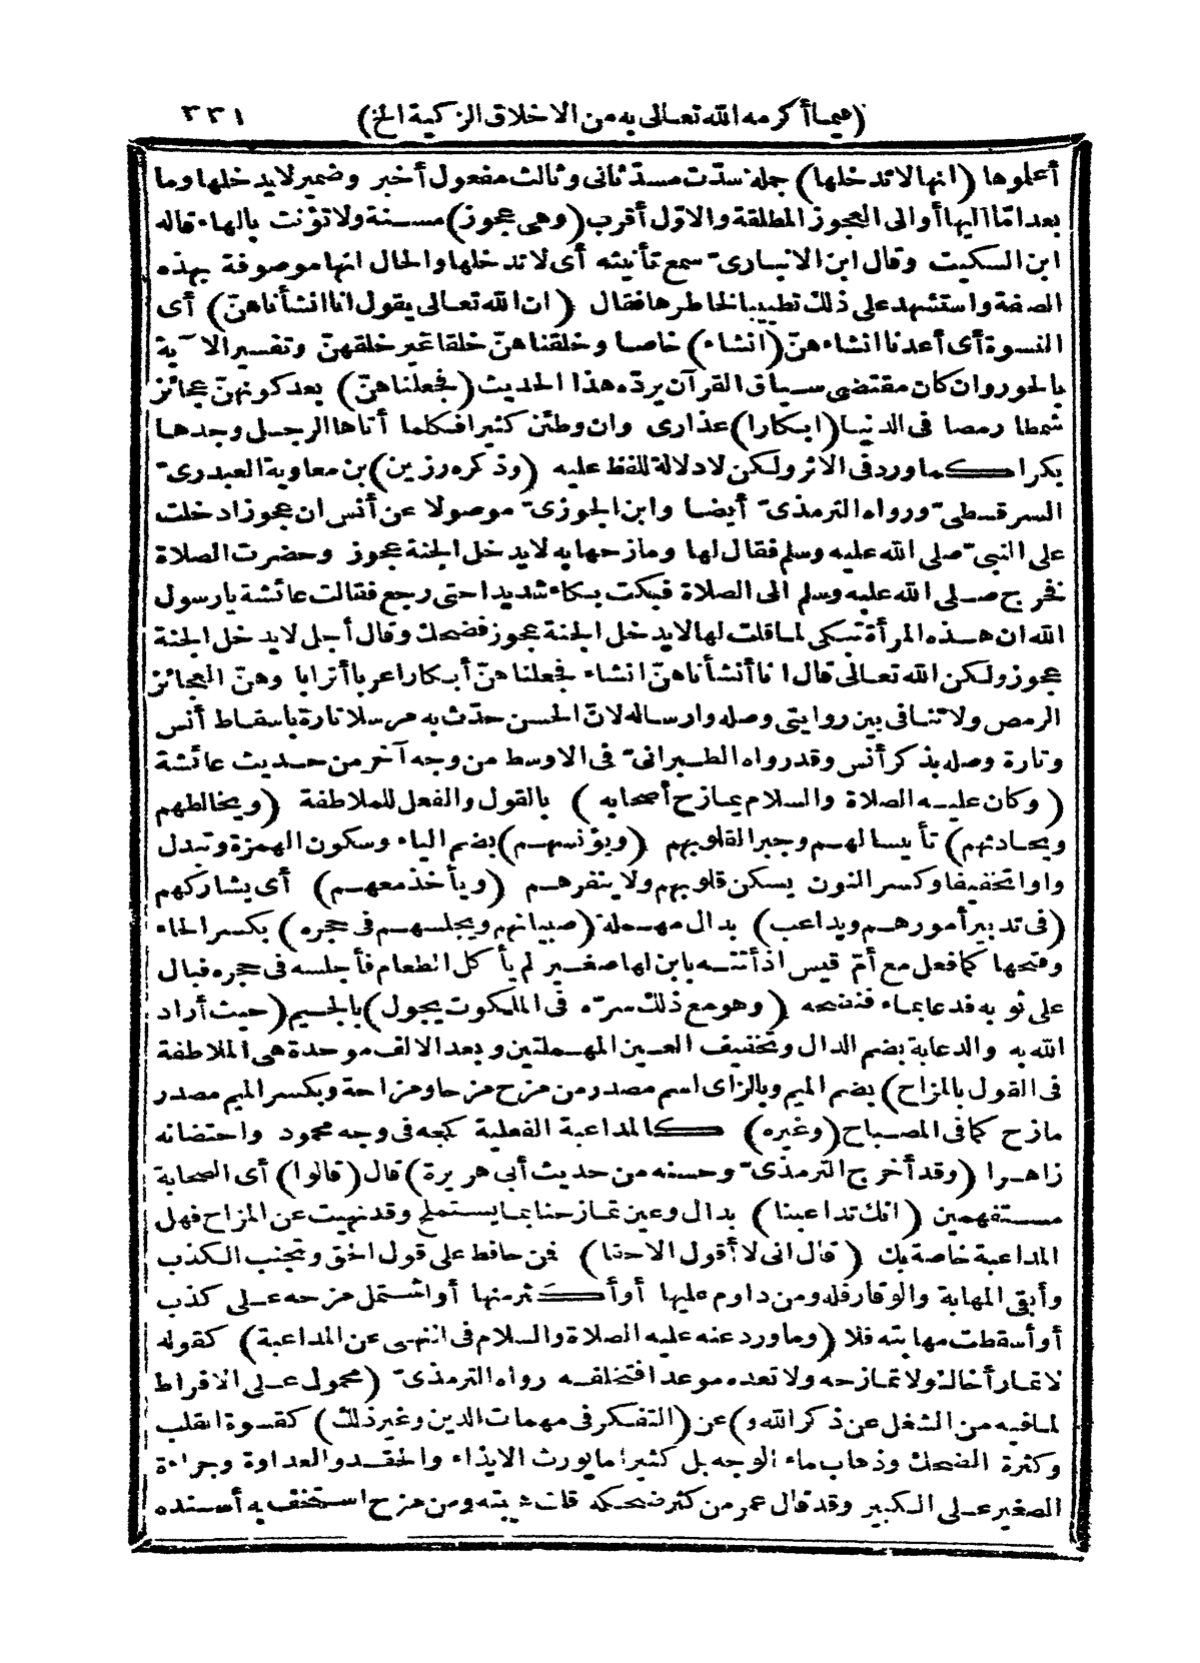 (فيما أكرمه الله تعالى به من الاخلاق الزكية الخ) ٣٣١
أعلوها (انها لا تدخلها) جملة سدّت مسدّ ثانى وثالث مفعول أخبر وضمير لا يدخلها وما
بعد امّا اليها أوالى العجوز المطلقة والاوّل أقرب (وهى عجوز) مسنة ولا تؤنث بالهاء قاله
ابن السكيت وقال ابن الانبارىّ سمع تأنيثه أى لا تدخلها والحال انها موصوفة بهذه
الصفة واستشهد على ذلك تطييبا لخاطرها فقال (ان الله تعالى يقول انا انشأناهنّ) أى
النسوة أى أعدنا انشاءهنّ (انشاء) خاصا وخلقناهنّ خلقا غير خلقهنّ وتفسير الآية
بالحور وان كان مقتضى سياق القرآن يردّه هذا الحديث (فجعلناهنّ) بعد كونهنّ عجائز
شمطا رمصا فى الدنيا (ابكارا) عذارى وان وطئن كثيرا فكلما أتاها الرجل وجدها
بكرا كما ورد فى الاثر ولكن لا دلالة للفظ عليه (وذكره رزين) بن معاوية العبدرىّ
السرقسطىّ ورواه الترمذىّ أيضا وابن الجوزىّ موصولا عن أنس ان عجوزا دخلت
على النبىّ صلى الله عليه وسلم فقال لها ومازحها به لا يدخل الجنة عجوز وحضرت الصلاة
فخرج صلى الله عليه وسلم الى الصلاة فبكت بكاء شديدا حتى رجع فقالت عائشة يا رسول
الله ان هذه المرأة تبكى لما قلت لها لا يدخل الجنة عجوز فضحك وقال أجل لا يدخل الجنة
عجوز ولكن الله تعالى قال انا أنشأناهنّ انشاء فجعلناهنّ أبكارا عربا أترابا وهنّ العجائز
الرمص ولا تنافى بين روايتى وصله وارساله لانّ الحسن حدّث به مرسلا تارة باسقاط أنس
وتارة وصله بذكر أنس وقد رواه الطبرانىّ فى الاوسط من وجه آخر من حديث عائشة
(وكان عليه الصلاة والسلام يمازح أصحابه) بالقول والفعل للملاطفة (ويخالطهم
ويحادثهم) تأنيسا لهم وجبرا لقلوبهم (ويؤنسهم) بضم الياء وسكون الهمزة وتبدل
واوا تخفيفا وكسر النون يسكن قلوبهم ولا ينفرهم (ويأخذ معهم) أى يشاركهم
(فى تدبير أمورهم ويداعب) بدال مهملة (صبيانهم ويجلسهم فى حجره) بكسر الحاء
وفتحها كما فعل مع أمّ قيس اذ أتته بابن لها صغير لم يأكل الطعام فأجلسه فى حجره فبال
على ثوبه فدعا بماء فنضحه (وهو مع ذلك سرّه فى الملكوت يجول) بالجيم (حيث أراد
الله به والدعابة بضم الدال وتخفيف العين المهملتين وبعد الالف موحدة هى الملاطفة
فى القول بالمزاح) بضم الميم وبالزاى اسم مصدر من مزح مزحا ومزاحة وبكسر الميم مصدر
مازح كما فى المصباح (وغيره) كالمداعبة الفعلية كمجه فى وجه محمود واحتضانه
زاهرا (وقد أخرج الترمذىّ وحسنه من حديث أبى هريرة) قال (قالوا) أى الصحابة
مستفهمين (انك تداعبنا) بدال وعين تمازحنا بما يستملح وقد نهيت عن المزاح فهل
المداعبة خاصة بك (قال انى لا أقول الا حقا) فمن حافظ على قول الحق وتجنب الكذب
وأبقى المهابة والوقار فله ومن داوم عليها أو أكثر منها أو اشتمل مزحه على كذب
أو أسقطت مهابته فلا (وما ورد عنه عليه الصلاة والسلام فى النهى عن المداعبة) كقوله
لا تمار أخاك ولا تمازحه ولا تعده موعدا فتخلفه رواه الترمذىّ (محمول على الافراط
لما فيه من الشغل عن ذكر الله و) عن (التفكر فى مهمات الدين وغير ذلك) كقسوة القلب
وكثرة الضحك وذهاب ماء الوجه بل كثيرا ما يورث الايذاء والحقد والعداوة وجراءة
الصغير على الكبير وقد قال عمر من كثر ضحكه قلت هيبته ومن مزح استخف به أسنده